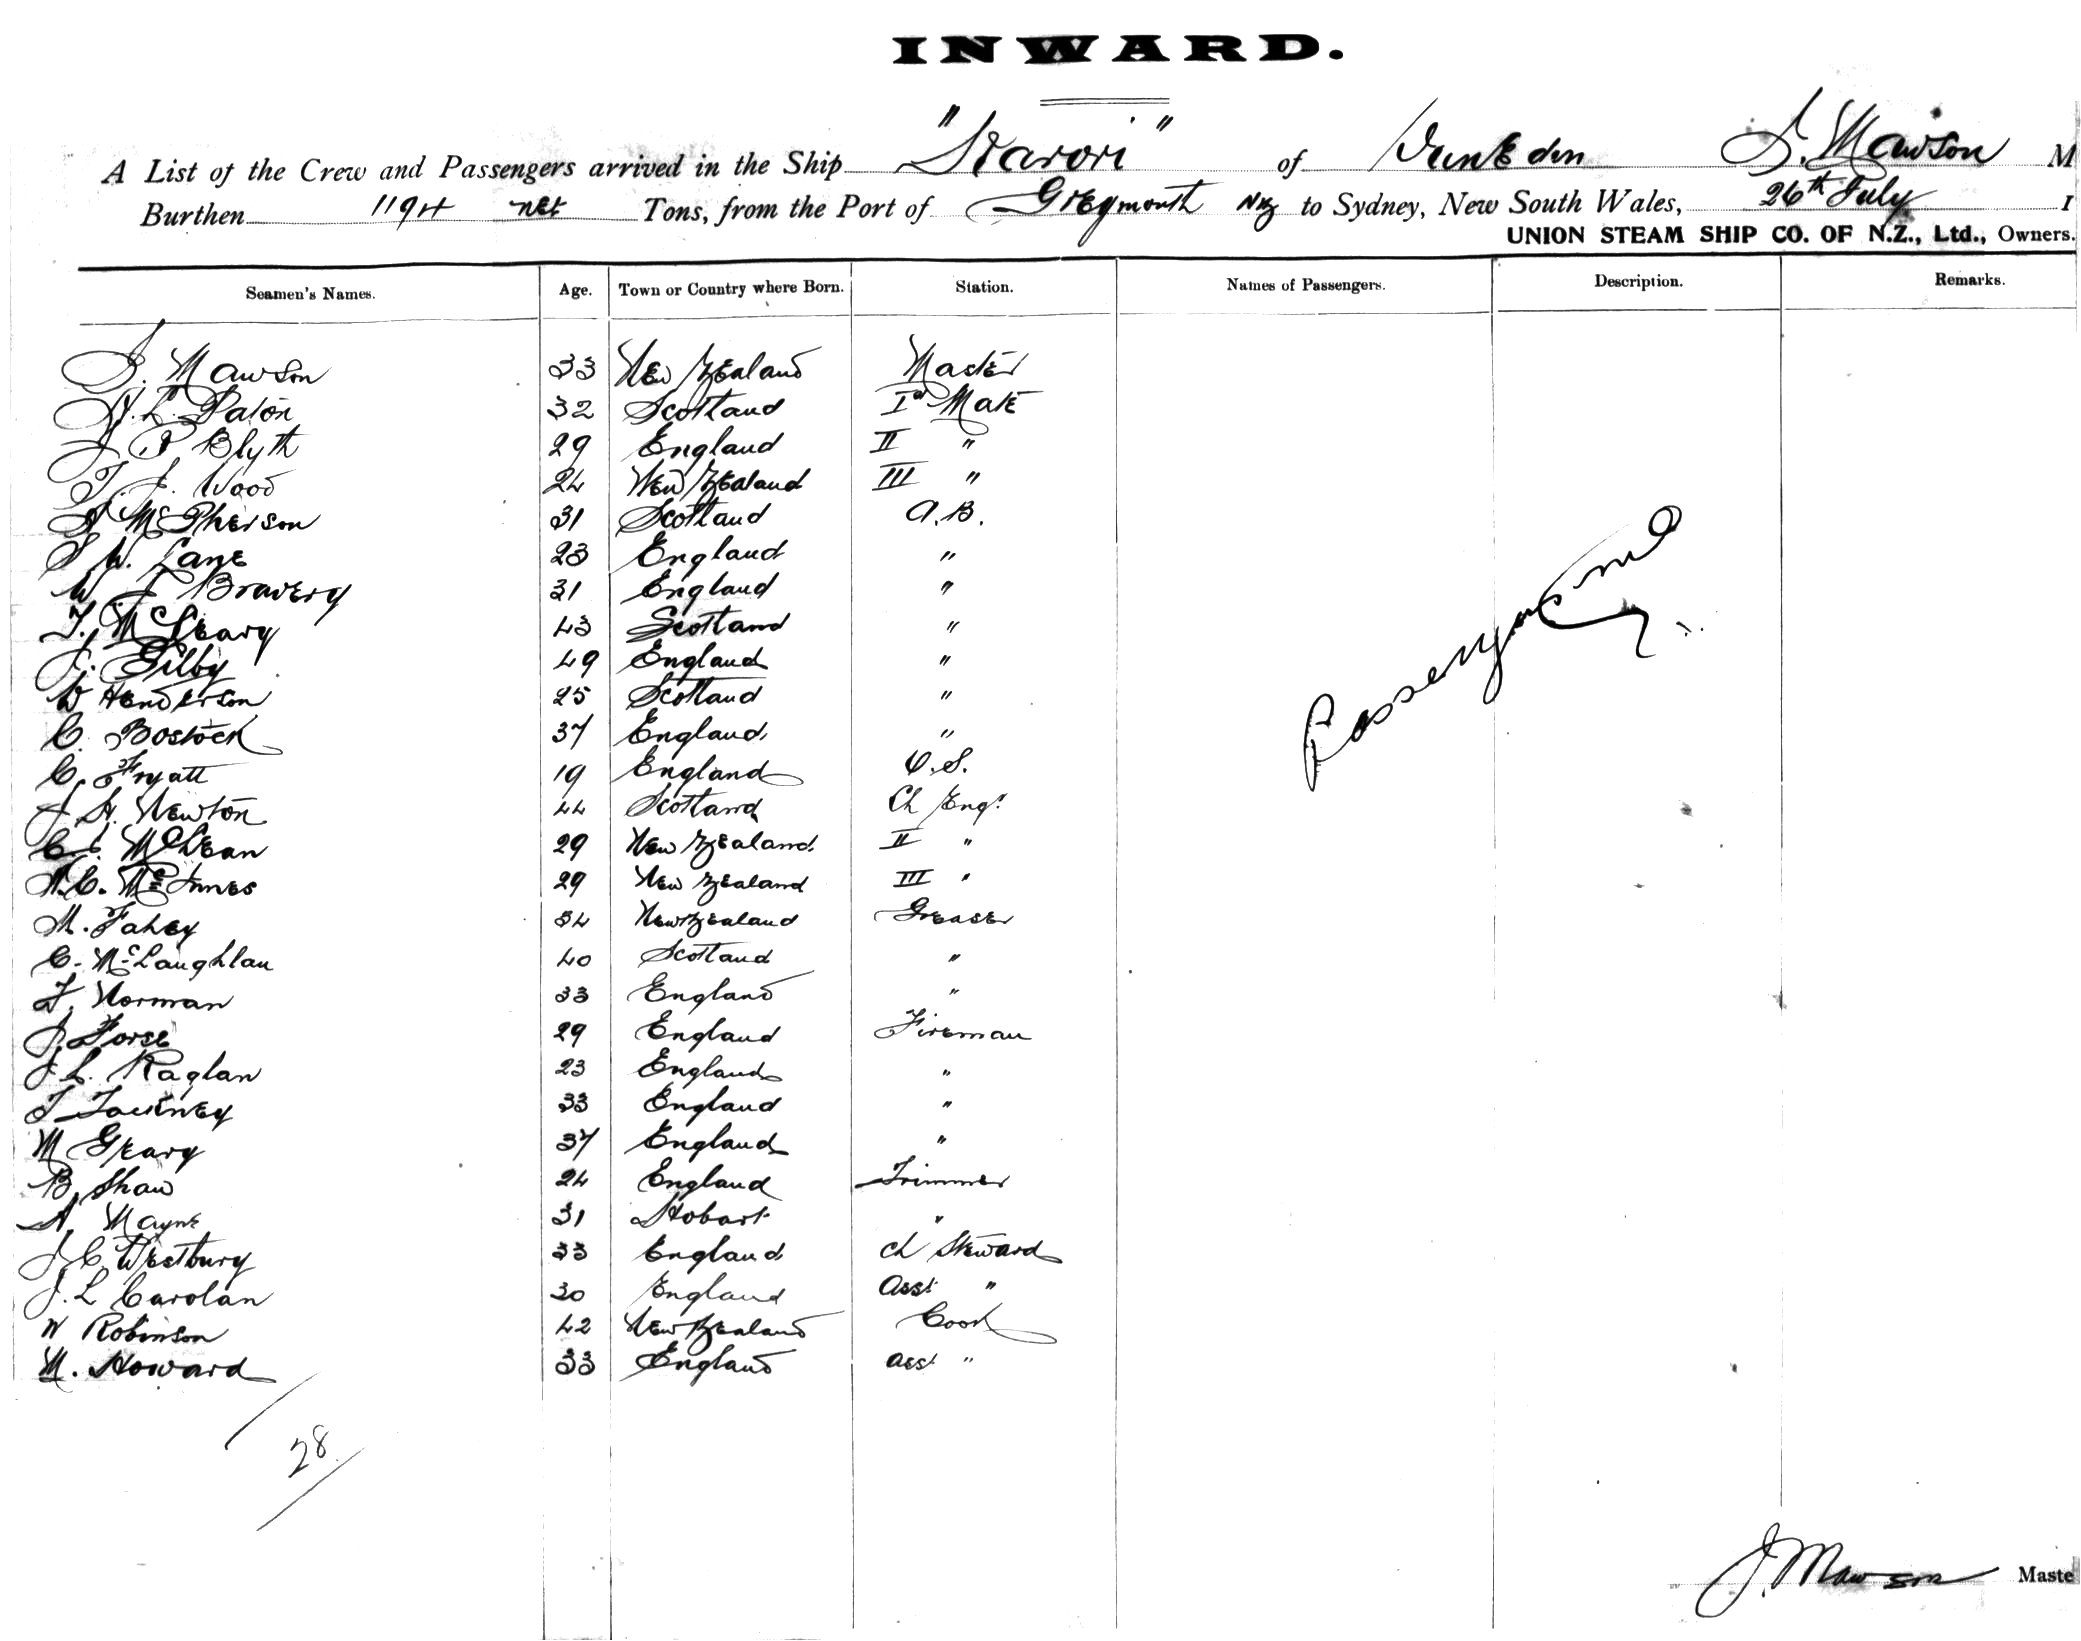 INWARD.
A List of the Crew and Passengers arrived in the Ship "Karori" of Dunedin J. Mawson M
Burthen 1194 net Tons, from the Port of Greymouth NZ to Sydney, New South Wales, 26th July 1
UNION STEAM SHIP CO. OF N.Z., Ltd., Owners.
Seamen's Names. Age. Town or Country where Born. Station. Names of Passengers. Description. Remarks.
J. Mawson 33 New Zealand Master
H. L. Paton 32 Scotland Ist Mate
J P Blyth 29 England II "
T. J. Wood 24 New Zealand III "
A McPherson 31 Scotland A.B.
S W. Lane 23 England "
W. J Bravery 31 England "
T. McLeary 43 Scotland "
J. Gilby 49 England "
W Henderson 25 Scotland "
C. Bostock 37 England "
C. Fryatt 19 England O.S.
J. H. Newton 44 Scotland Ch Engr
C. J. McLean 29 New Zealand II "
A. C. McInnes 29 New Zealand III "
M. Fahey 34 New Zealand Greaser
C. McLaughlan 40 Scotland "
F. Norman 33 England "
J. Forse 29 England Fireman
J. L. Raglan 23 England "
T 33 England "
M Geary 37 England "
B, Shaw 24 England Trimmer
A. Mayne 31 Hobart "
J C Westbury 33 England Ch Steward
J. L Carolan 30 England Asst "
W Robinson 42 New Zealand Cook
M. Howard 33 England Asst "
Passengers nil
28
J. Mawson Maste